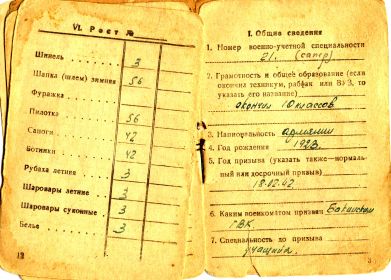 VI. Рост №
Шинель 3
Шапка (шлем) зимняя 56
Фуражка
Пилотка 56
Сапоги 42
Ботинки 42
Рубаха летняя 3
Шаровары летние 3
Шаровары суконные 3
Белье 3
12
I. Общие сведения
1. Номер военно-учетной специальности
21. (сапер)
2. Грамотность и общее образование (если
окончил техникум, рабфак или ВУЗ, то
указать его название)
окончил 10 классов
3. Национальность армянин
4. Год рождения 1923
5. Год призыва (указать также—нормаль-
ный или досрочный призыв)
18.02.42
6. Каким военкоматом призван Бакинским
ГВК
7. Специальность до призыва
учащийся
3